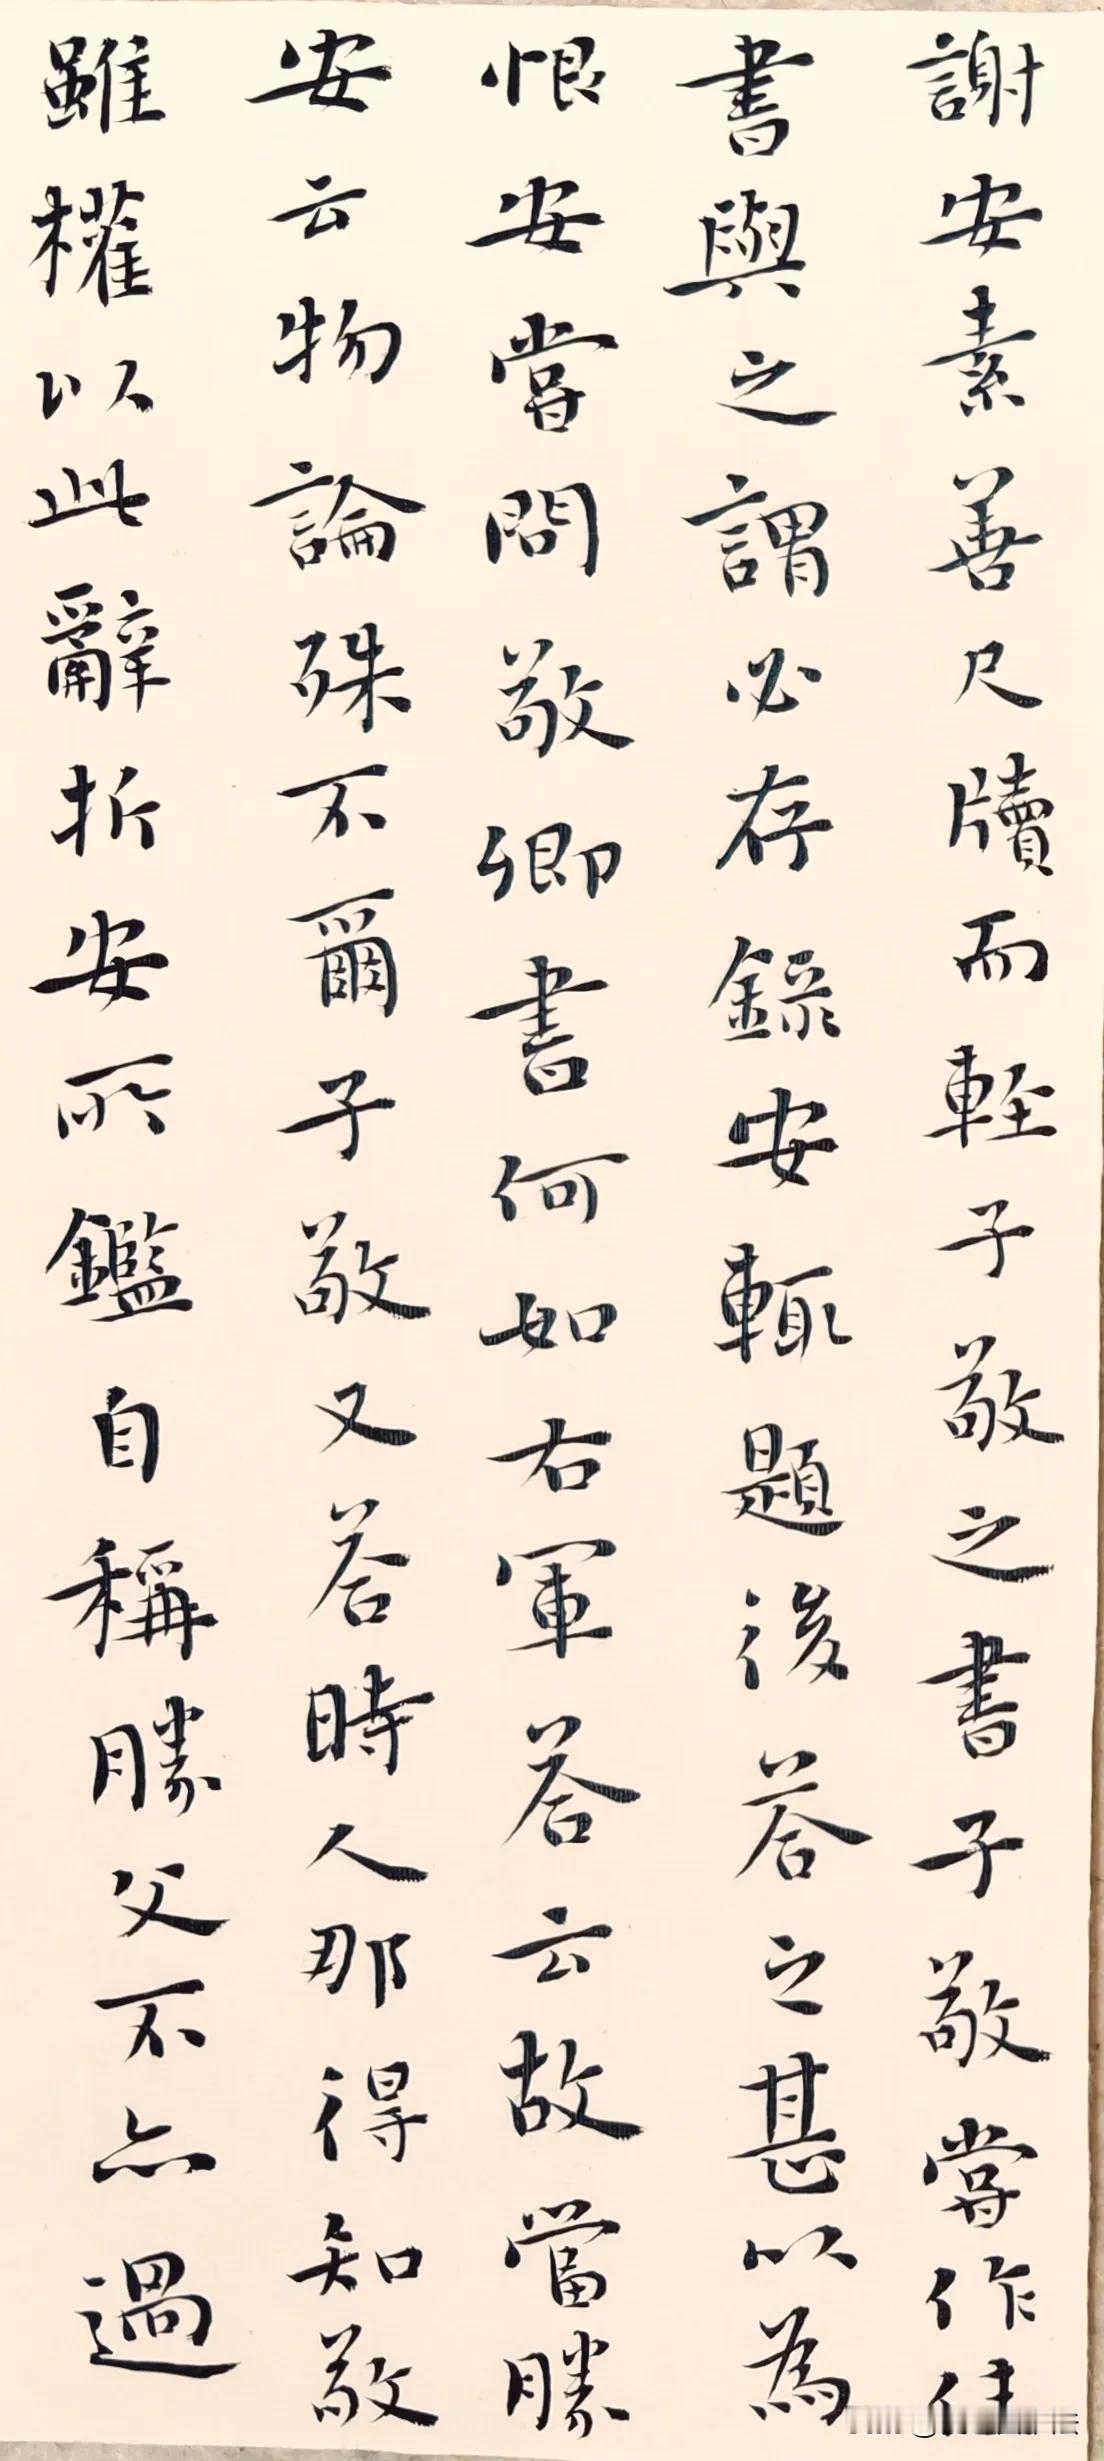 謝安素善尺牘而輕子敬之書子敬嘗作佳
書與之謂必存錄安輒題後答之甚以為
恨安嘗問敬卿書何如右軍答云故當勝
安云物論殊不爾子敬又答時人那得知敬
雖權以此辭折安所鑑自稱勝父不亦過